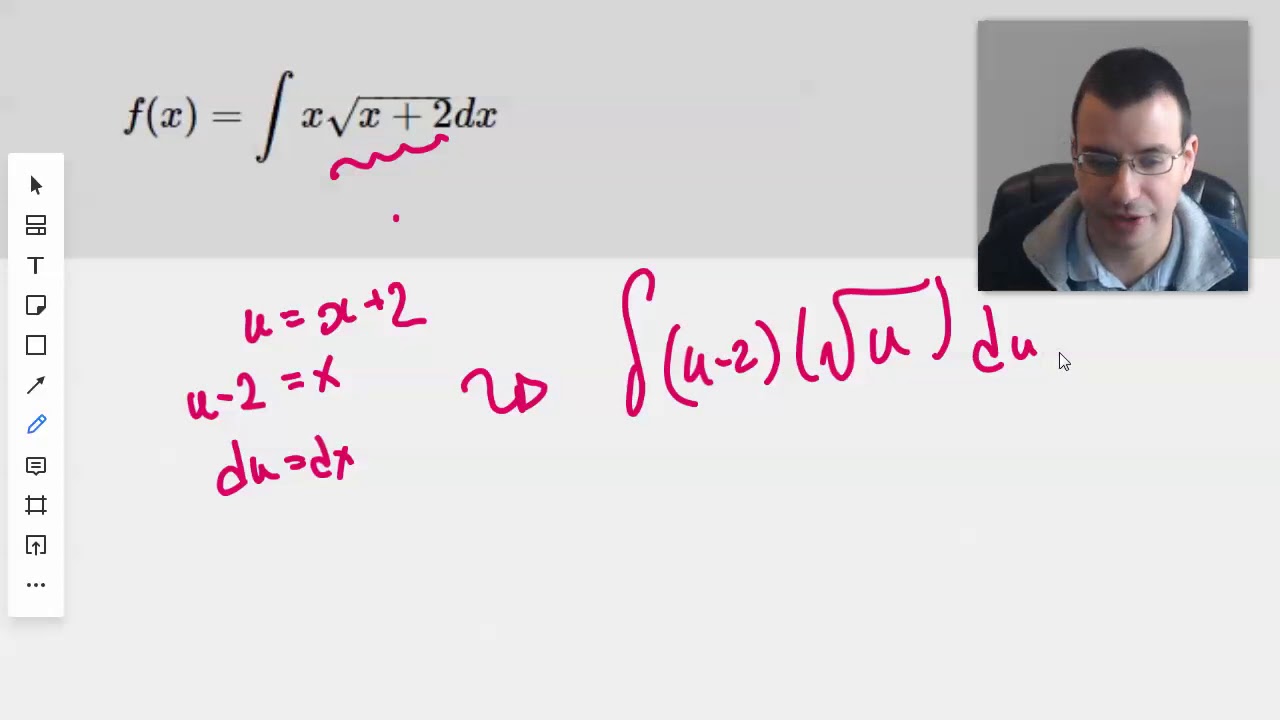 f(x) = ∫ x√(x + 2)dx
u = x+2
u-2 = x
du = dx
∫ (u-2)(√u) du
T